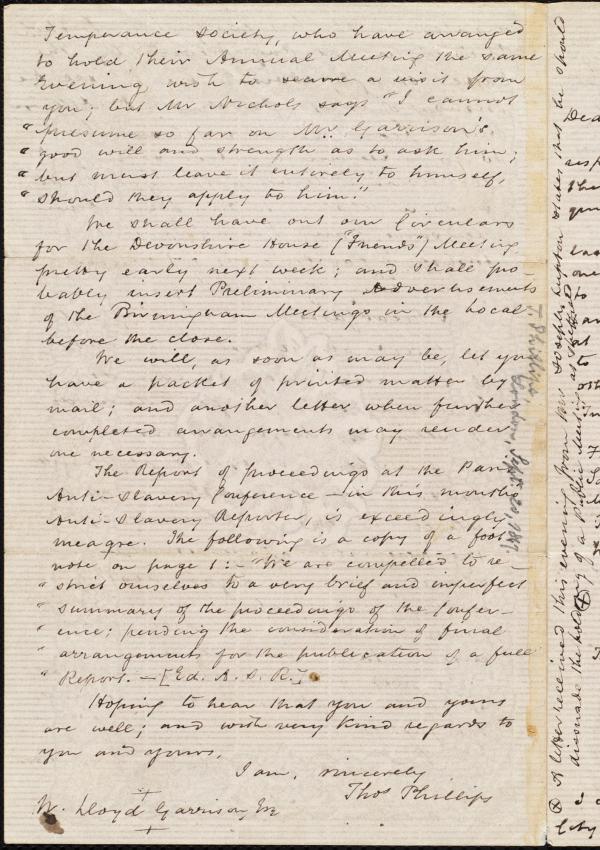 Temperance Society, who have arranged
to hold their Annual Meeting the same
Evening wish to secure a visit from
you; but Mr Nichols says "I cannot
"presume so far on Mr. Garrison's
"good will and strength as to ask him;
"but must leave it entirely to himself,
"should they apply to him."
We shall have out our Circulars
for the Devonshire House ("Friends") Meeting
pretty early next week; and shall pro-
bably insert Preliminary Advertisements
of the Birmingham Meetings in the Local
before the close.
We will, as soon as may be, let you
have a packet of printed matter by
mail; and another letter when further
completed arrangements may render
one necessary.
The Report of proceedings at the Paris
Anti-Slavery Conference – in this month's
Anti-Slavery Reporter, is exceedingly
meagre. The following is a copy of a foot
note on page 1: – "We are compelled to re-
"strict ourselves to a very brief and imperfect
"summary of the proceedings of the Confer-
"ence; pending the consideration of final
"arrangements for the publication of a full
"Report. – [Ed. A. S. R.]
Hoping to hear that you and yours
are well; and with very kind regards to
you and yours,
I am, sincerely
Thos Phillips
W. Lloyd Garrison Esq
T. Phillips,
London, Sept. 20, 1867
A letter received this evening from Mr Joseph states that he should
dissuade the holding of a Public Meeting at
Dea